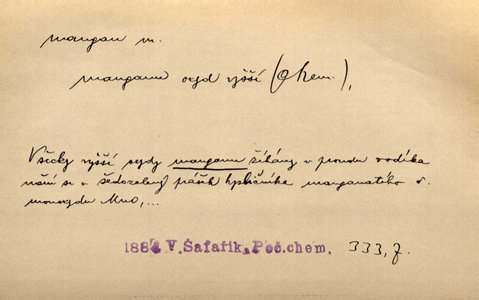 mangan m.
manganu oxyd vyšší (Chem.),
Všecky vyšší oxydy manganu žíhány v proudu vodíka
mění se v šedozelený prášek kysličníka manganatého č.
monoxydu MnO,...
1884 V. Šafařík, Poč.chem. 333,7.